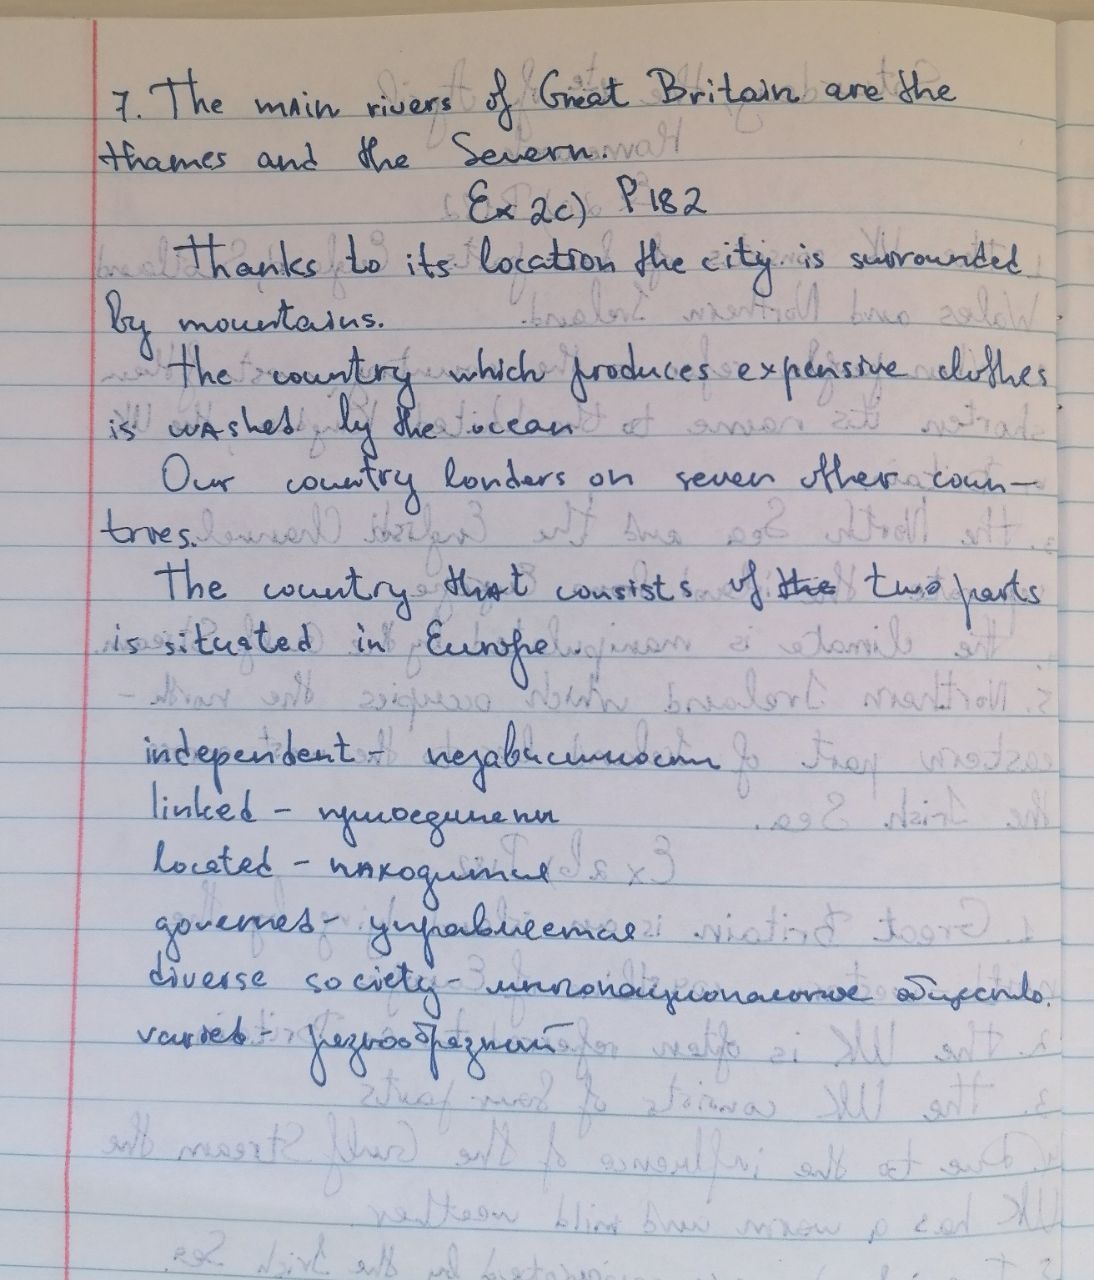 7. The main rivers of Great Britain are the
thames and the Severn.
Ex 2c) P 182
Thanks to its location the city is surrounded
by mountains.
The country which produces expensive clothes
is washed by the ocean
Our country borders on seven other coun-
tries.
The country that consists of the two parts
is situated in Europe.
independent - независимости
linked - присоединены
located - находится
governed - управляется
diverse society - многонациональное общество.
varied - разнообразный